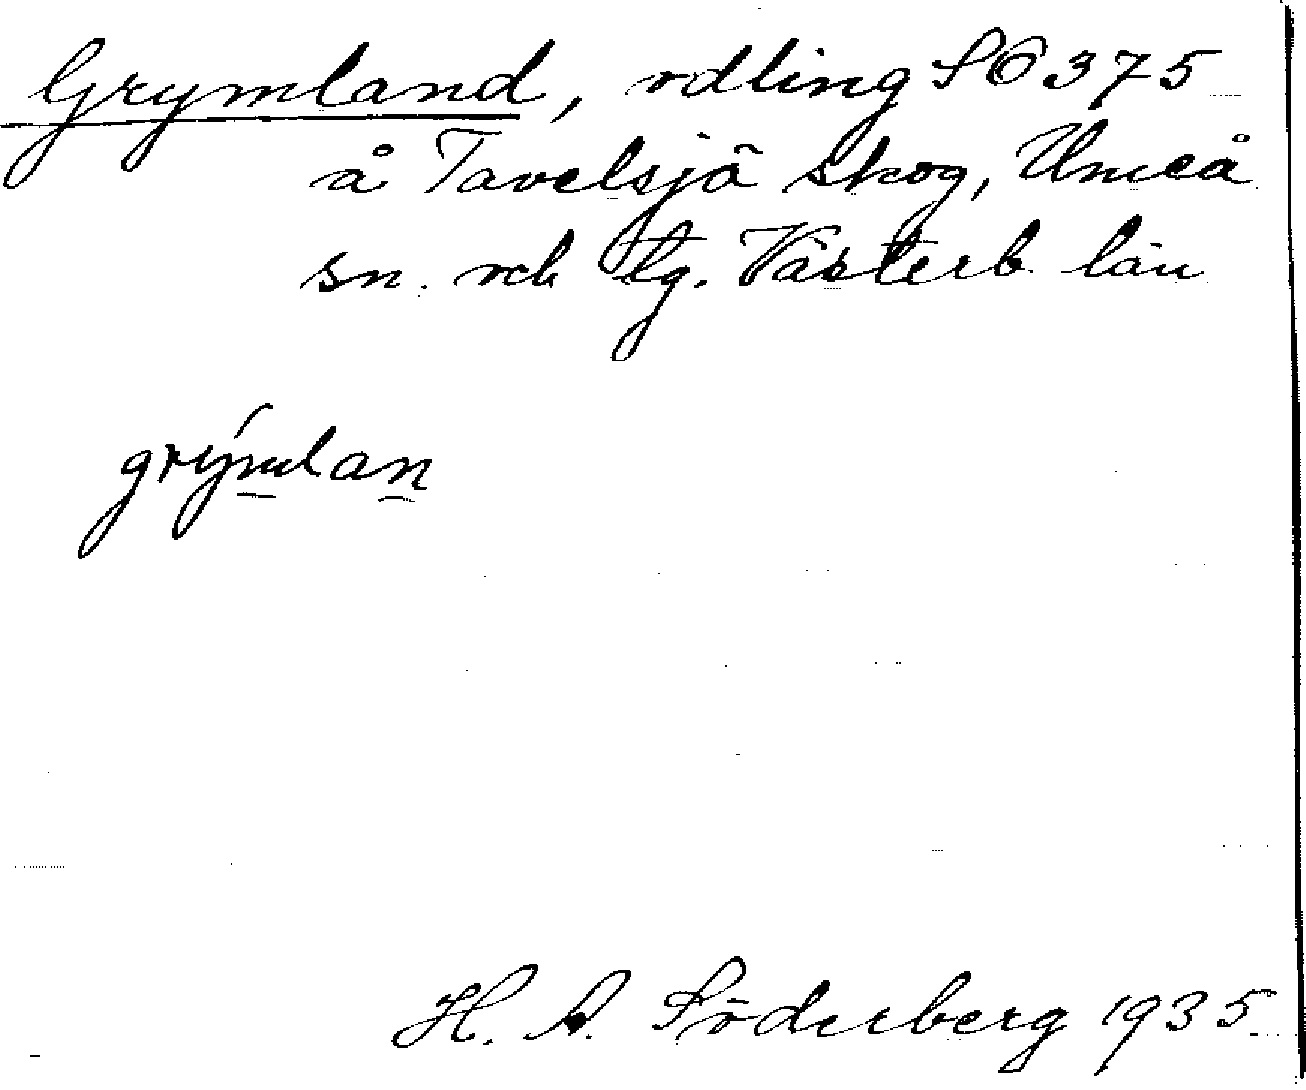 Grymland, odling SO 375
å Tavelsjö skog, Umeå
sn. och tg. Västerb. län
grýmlan
H. A. Söderberg 1935.